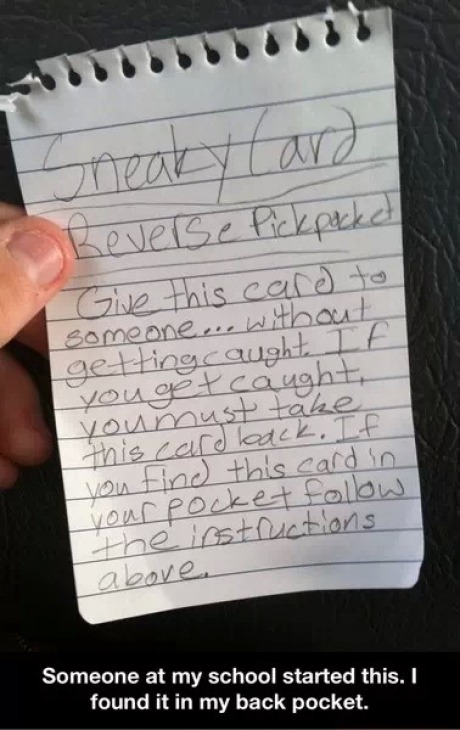 Sneaky Card
Reverse Pickpocket
Give this card to
someone... without
getting caught. If
you get caught,
you must take
this card back. If
you find this card in
your pocket follow
the instructions
above.
Someone at my school started this. I
found it in my back pocket.